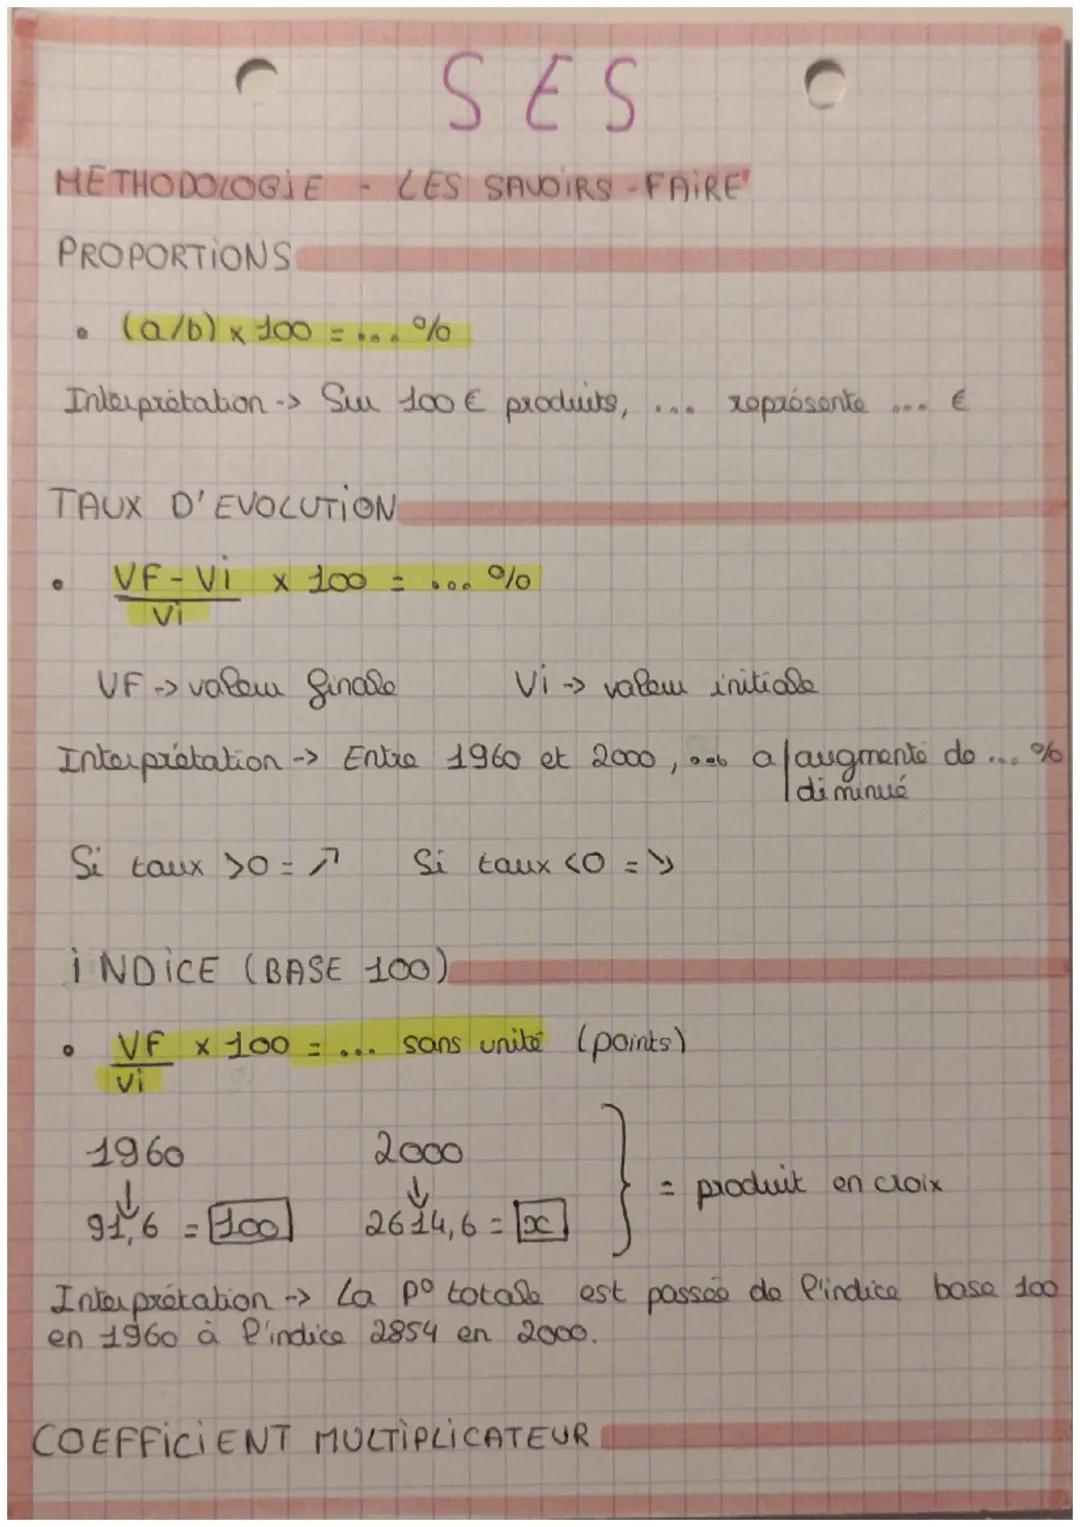 SES
METHODOLOGIE - LES SAVOIRS-FAIRE
PROPORTIONS
• (a/b) x 100 = ... %
Interprétation -> Sur 100 € produits, ... représente ... €
TAUX D'EVOLUTION
• VF - Vi x 100 = ... %
Vi
VF -> valeur finale Vi -> valeur initiale
Interprétation -> Entre 1960 et 2000, ... a augmenté de ... %
diminué
Si taux >0 = ↗ Si taux <0 = ↘
INDICE (BASE 100)
• VF x 100 = ... sans unité (points)
Vi
1960 2000
↓ ↓
91,6 = 100 2614,6 = x } = produit en croix
Interprétation -> La p° totale est passée de l'indice base 100
en 1960 à l'indice 2854 en 2000.
COEFFICIENT MULTIPLICATEUR